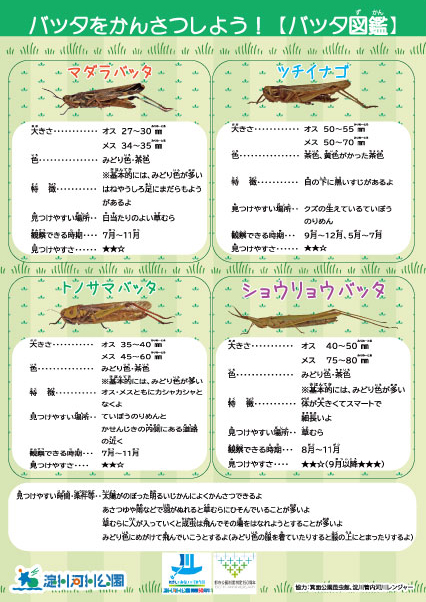 バッタをかんさつしよう！【バッタ図鑑】
マダラバッタ
大きさ………… オス 27～30 ㎜
メス 34～35 ㎜
色…………… みどり色・茶色
※基本的には、みどり色が多い
特 徴………… はねやうしろ足にまだらもよう
があるよ
見つけやすい場所・・ 日当たりのよい草むら
観察できる時期…… 7月～11月
見つけやすさ…… ★★☆
ツチイナゴ
大きさ………… オス 50～55 ㎜
メス 50～70 ㎜
色…………… 茶色、黄色がかった茶色
特 徴………… 目の下に黒いすじがあるよ
見つけやすい場所・・ クズの生えているていぼう
のりめん
観察できる時期…… 9月～12月、5月～7月
見つけやすさ…… ★★☆
トノサマバッタ
大きさ………… オス 35～40 ㎜
メス 45～60 ㎜
色…………… みどり色・茶色
※基本的には、みどり色が多い
特 徴………… オス・メスともにカシャカシャと
なくよ
見つけやすい場所・・ ていぼうのりめんと
かせんじきの内側にある道路
の近く
観察できる時期… 7月～11月
見つけやすさ…・ ★★☆
ショウリョウバッタ
大きさ………… オス 40～50 ㎜
メス 75～80 ㎜
色…………… みどり色・茶色
※基本的には、みどり色が多い
特 徴………… 体が大きくてスマートで
細長いよ
見つけやすい場所・・ 草むら
観察できる時期… 8月～11月
見つけやすさ…・ ★★☆（9月以降★★★）
見つけやすい時間・条件等・ 太陽がのぼった明るいじかんによくかんさつできるよ
あさつゆや雨などで羽がぬれると草むらにひそんでいることが多いよ
草むらに人が入っていくと成虫は飛んでその場をはなれようとすることが多いよ
みどり色にめがけて飛んでいこうとするよ（みどり色の服を着ていたりすると服の上にとまったりするよ）
淀川河川公園
協力：箕面公園昆虫館、淀川管内河川レンジャー